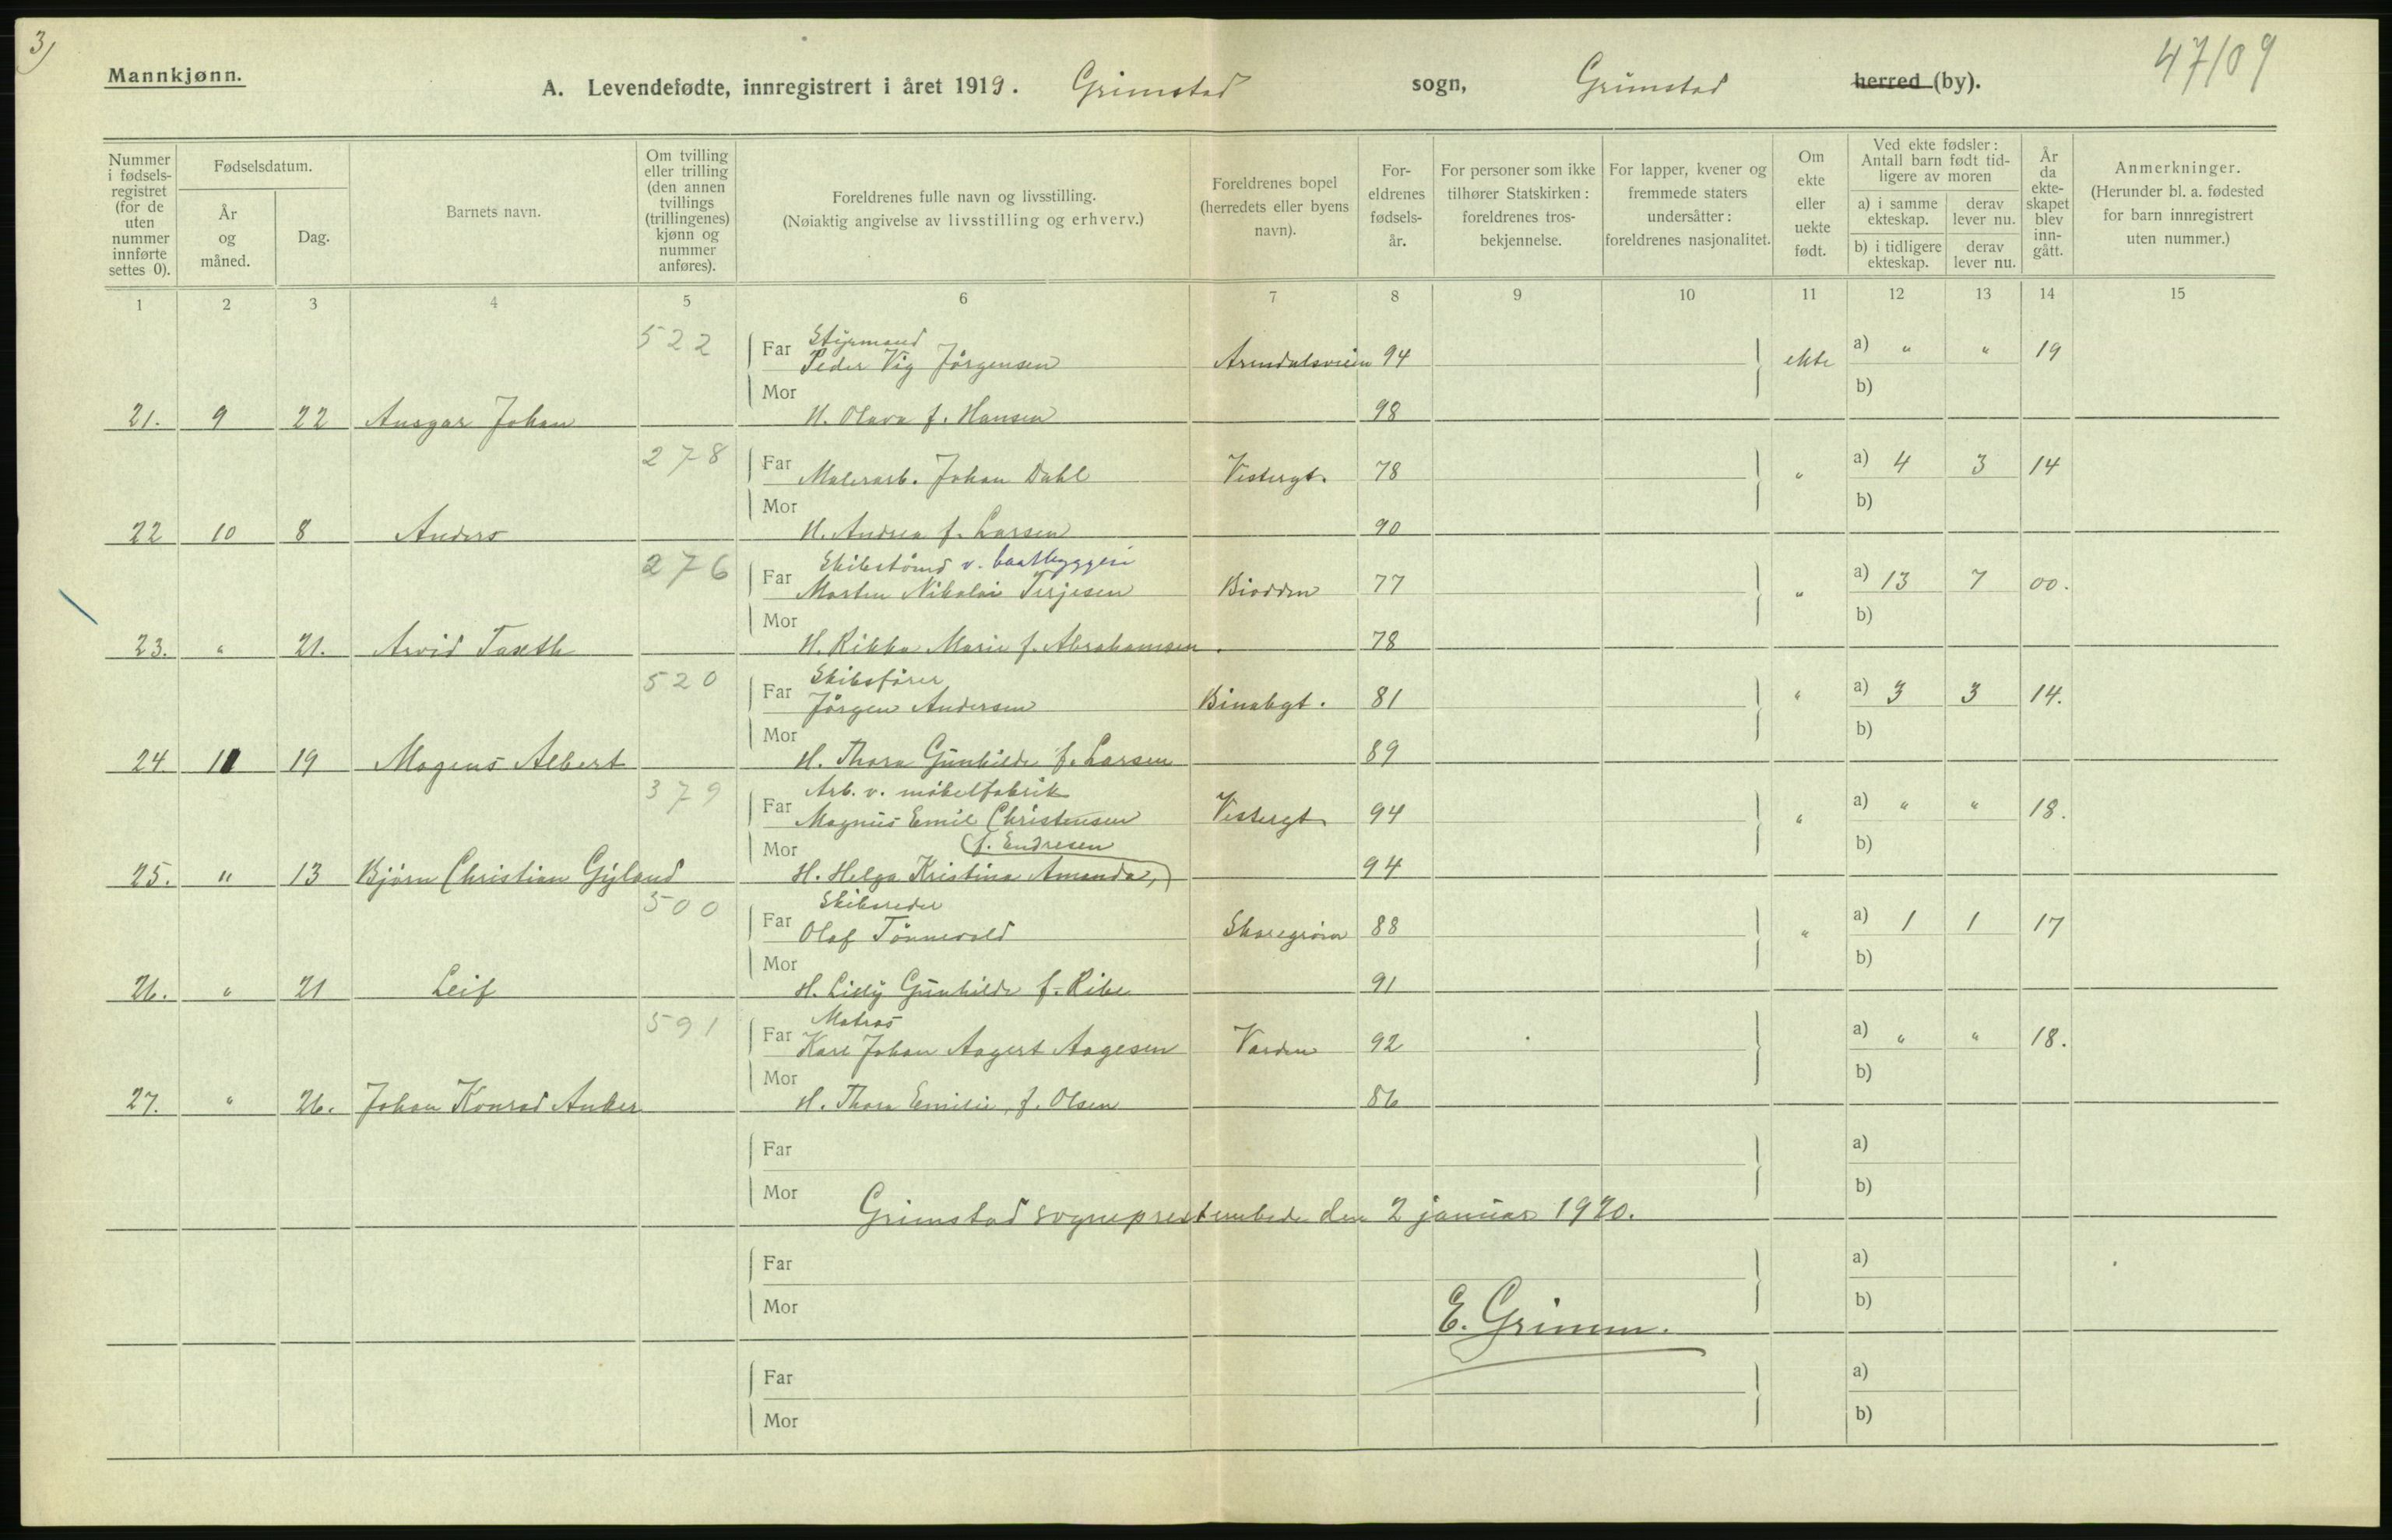 3)
Mannkjønn.
A. Levendefødte, innregistrert i året 1919. Grimstad sogn, Grimstad herred (by).
47/09
Nummer i fødsels-registret (for de uten nummer innførte settes 0).
Fødselsdatum.
År og måned.
Dag.
Barnets navn.
Om tvilling eller trilling (den annen tvillings (trillingenes) kjønn og nummer anføres).
Foreldrenes fulle navn og livsstilling.
(Nøiaktig angivelse av livsstilling og erhverv.)
Foreldrenes bopel (herredets eller byens navn).
For-eldrenes fødsels-år.
For personer som ikke tilhører Statskirken: foreldrenes tros-bekjennelse.
For lapper, kvener og fremmede staters undersåtter: foreldrenes nasjonalitet.
Om ekte eller uekte født.
Ved ekte fødsler: Antall barn født tid-ligere av moren
a) i samme ekteskap.
derav lever nu.
b) i tidligere ekteskap.
derav lever nu.
År da ekte-skapet blev inn-gått.
Anmerkninger.
(Herunder bl. a. fødested for barn innregistrert uten nummer.)
1 2 3 4 5 6 7 8 9 10 11 12 13 14 15
522 Styrmand
Far Peder Vig Jörgensen Arendalsveien 94 ekte a) " " 19
Mor b)
21. 9 22 Ansgar Johan H. Olava f. Hansen 98
278 Far Malerarb. Johan Dahl Vestergt. 78 " a) 4 3 14
Mor b)
22 10 8 Anders H. Andrea f. Larsen 90
276 Skibstömd v. baatbyggeri
Far Morten Nikolai Terjesen Biodden 77 " a) 13 7 00.
Mor b)
23. " 21. Arvid Taxth H. Rikka Marie f. Abrahamsen. 78
520 Skibsförer
Far Jörgen Andersen Binabgt. 81 " a) 3 3 14.
Mor b)
24 11 19 Mogens Albert H. Thora Gunhilde f. Larsen 89
379 Arb. v. möbelfabrik
Far Magnus Emil Christensen Vestergt. 94 " a) " " 18.
Mor f. Endresen b)
25. " 13 Björn Christian Gyland H. Helga Kristina Amanda, 94
500 Skibsreder
Far Olaf Tönnevold Skaregröm 88 " a) 1 1 17
Mor b)
26. " 21 Leif H. Lilly Gunhilde f. Ribe 91
591 Matros
Far Karl Johan Aagert Aagesen Varden 92 a) " " 18.
Mor b)
27. " 26. Johan Konrad Anker H. Thora Emilie, f. Olsen 86
Far a)
Mor b)
Grimstad sogneprestembede den 2 januar 1920.
Far a)
Mor b)
E. Grimm.
Far a)
Mor b)